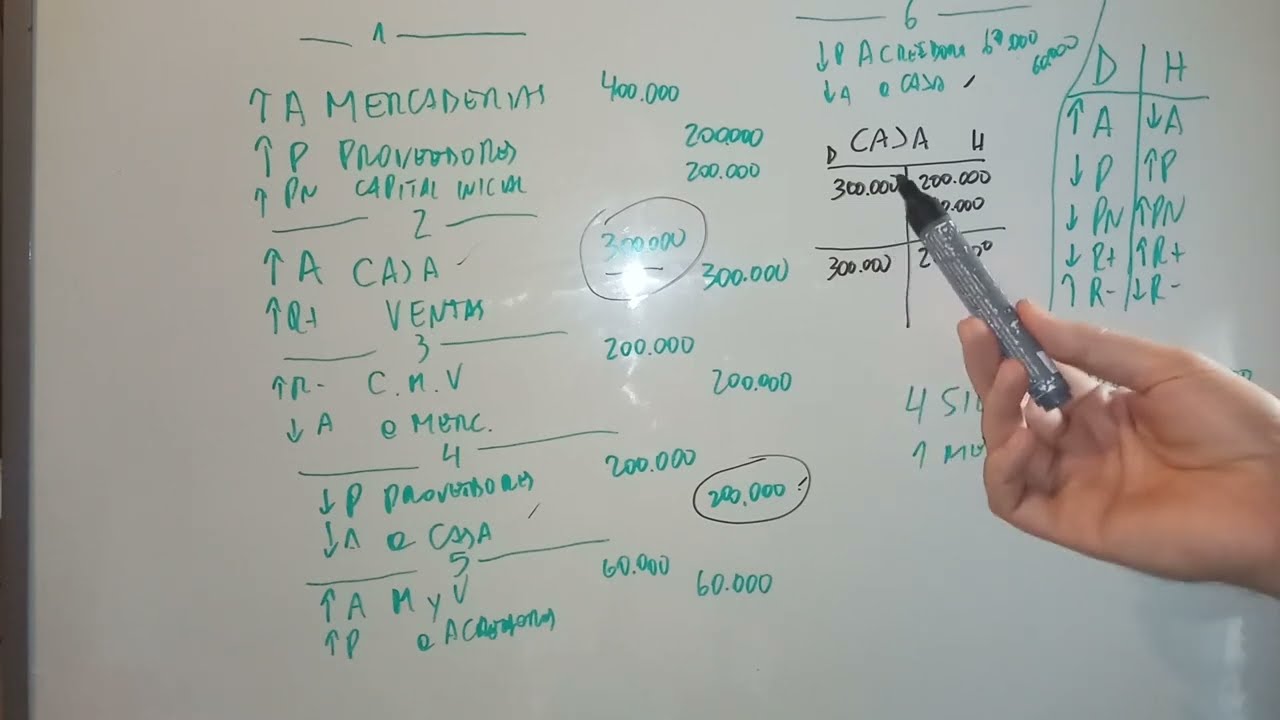 1
↑ A MERCADERIAS 400.000
↑ P PROVEEDORES 200.000
↑ PN CAPITAL INICIAL 200.000
2
↑ A CAJA 300.000
↑ R+ VENTAS 300.000
3
↑ R- C.M.V 200.000
↓ A a MERC. 200.000
4
↓ P PROVEEDORES 200.000
↓ A a CAJA 200.000
5
↑ A M y V 60.000
↑ P a ACREEDORES 60.000
6
↓ P ACREEDORES 60.000
↓ A a CAJA 60.000
D CAJA H
300.000 200.000
300.000
D H
↑ A ↓ A
↓ P ↑ P
↓ PN ↑ PN
↓ R+ ↑ R+
↑ R- ↓ R-
4
1